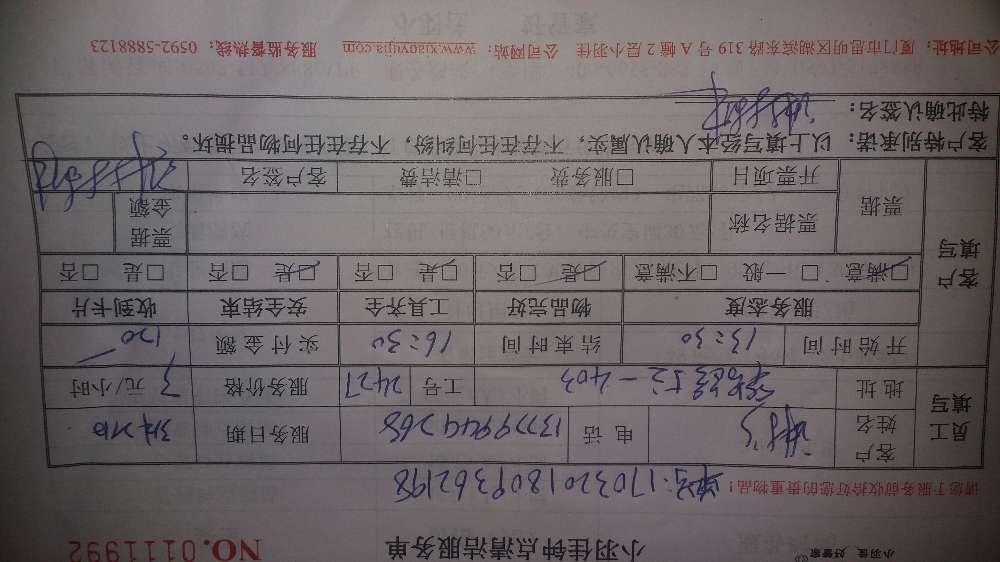 小羽佳 好管家 小羽佳钟点清洁服务单 NO.0111992
请您于服务前收拾好您的贵重物品！
单号:1703201809362198
员工填写
客户姓名 电话 13779944268 服务日期
地址 五之一403 工号 2427 服务价格 3 元/小时
开始时间 13:30 结束时间 16:30 实付金额 120
客户填写
服务态度 物品完好 工具齐全 安全结束 收到卡片
☑满意 □一般 □不满意 ☑是 □否 ☑是 □否 ☑是 □否 □是 □否
票据 票据名称 票据金额
开票项目 □服务费 □清洁费 客户签名
客户特别承诺：以上填写经本人确认属实，不存在任何纠纷，不存在任何物品损坏。
特此确认签名：
公司地址：厦门市思明区湖滨东路 319 号 A 幢 2 层小羽佳 公司网站：www.xiaoyujia.com 服务监督热线：0592-5888123